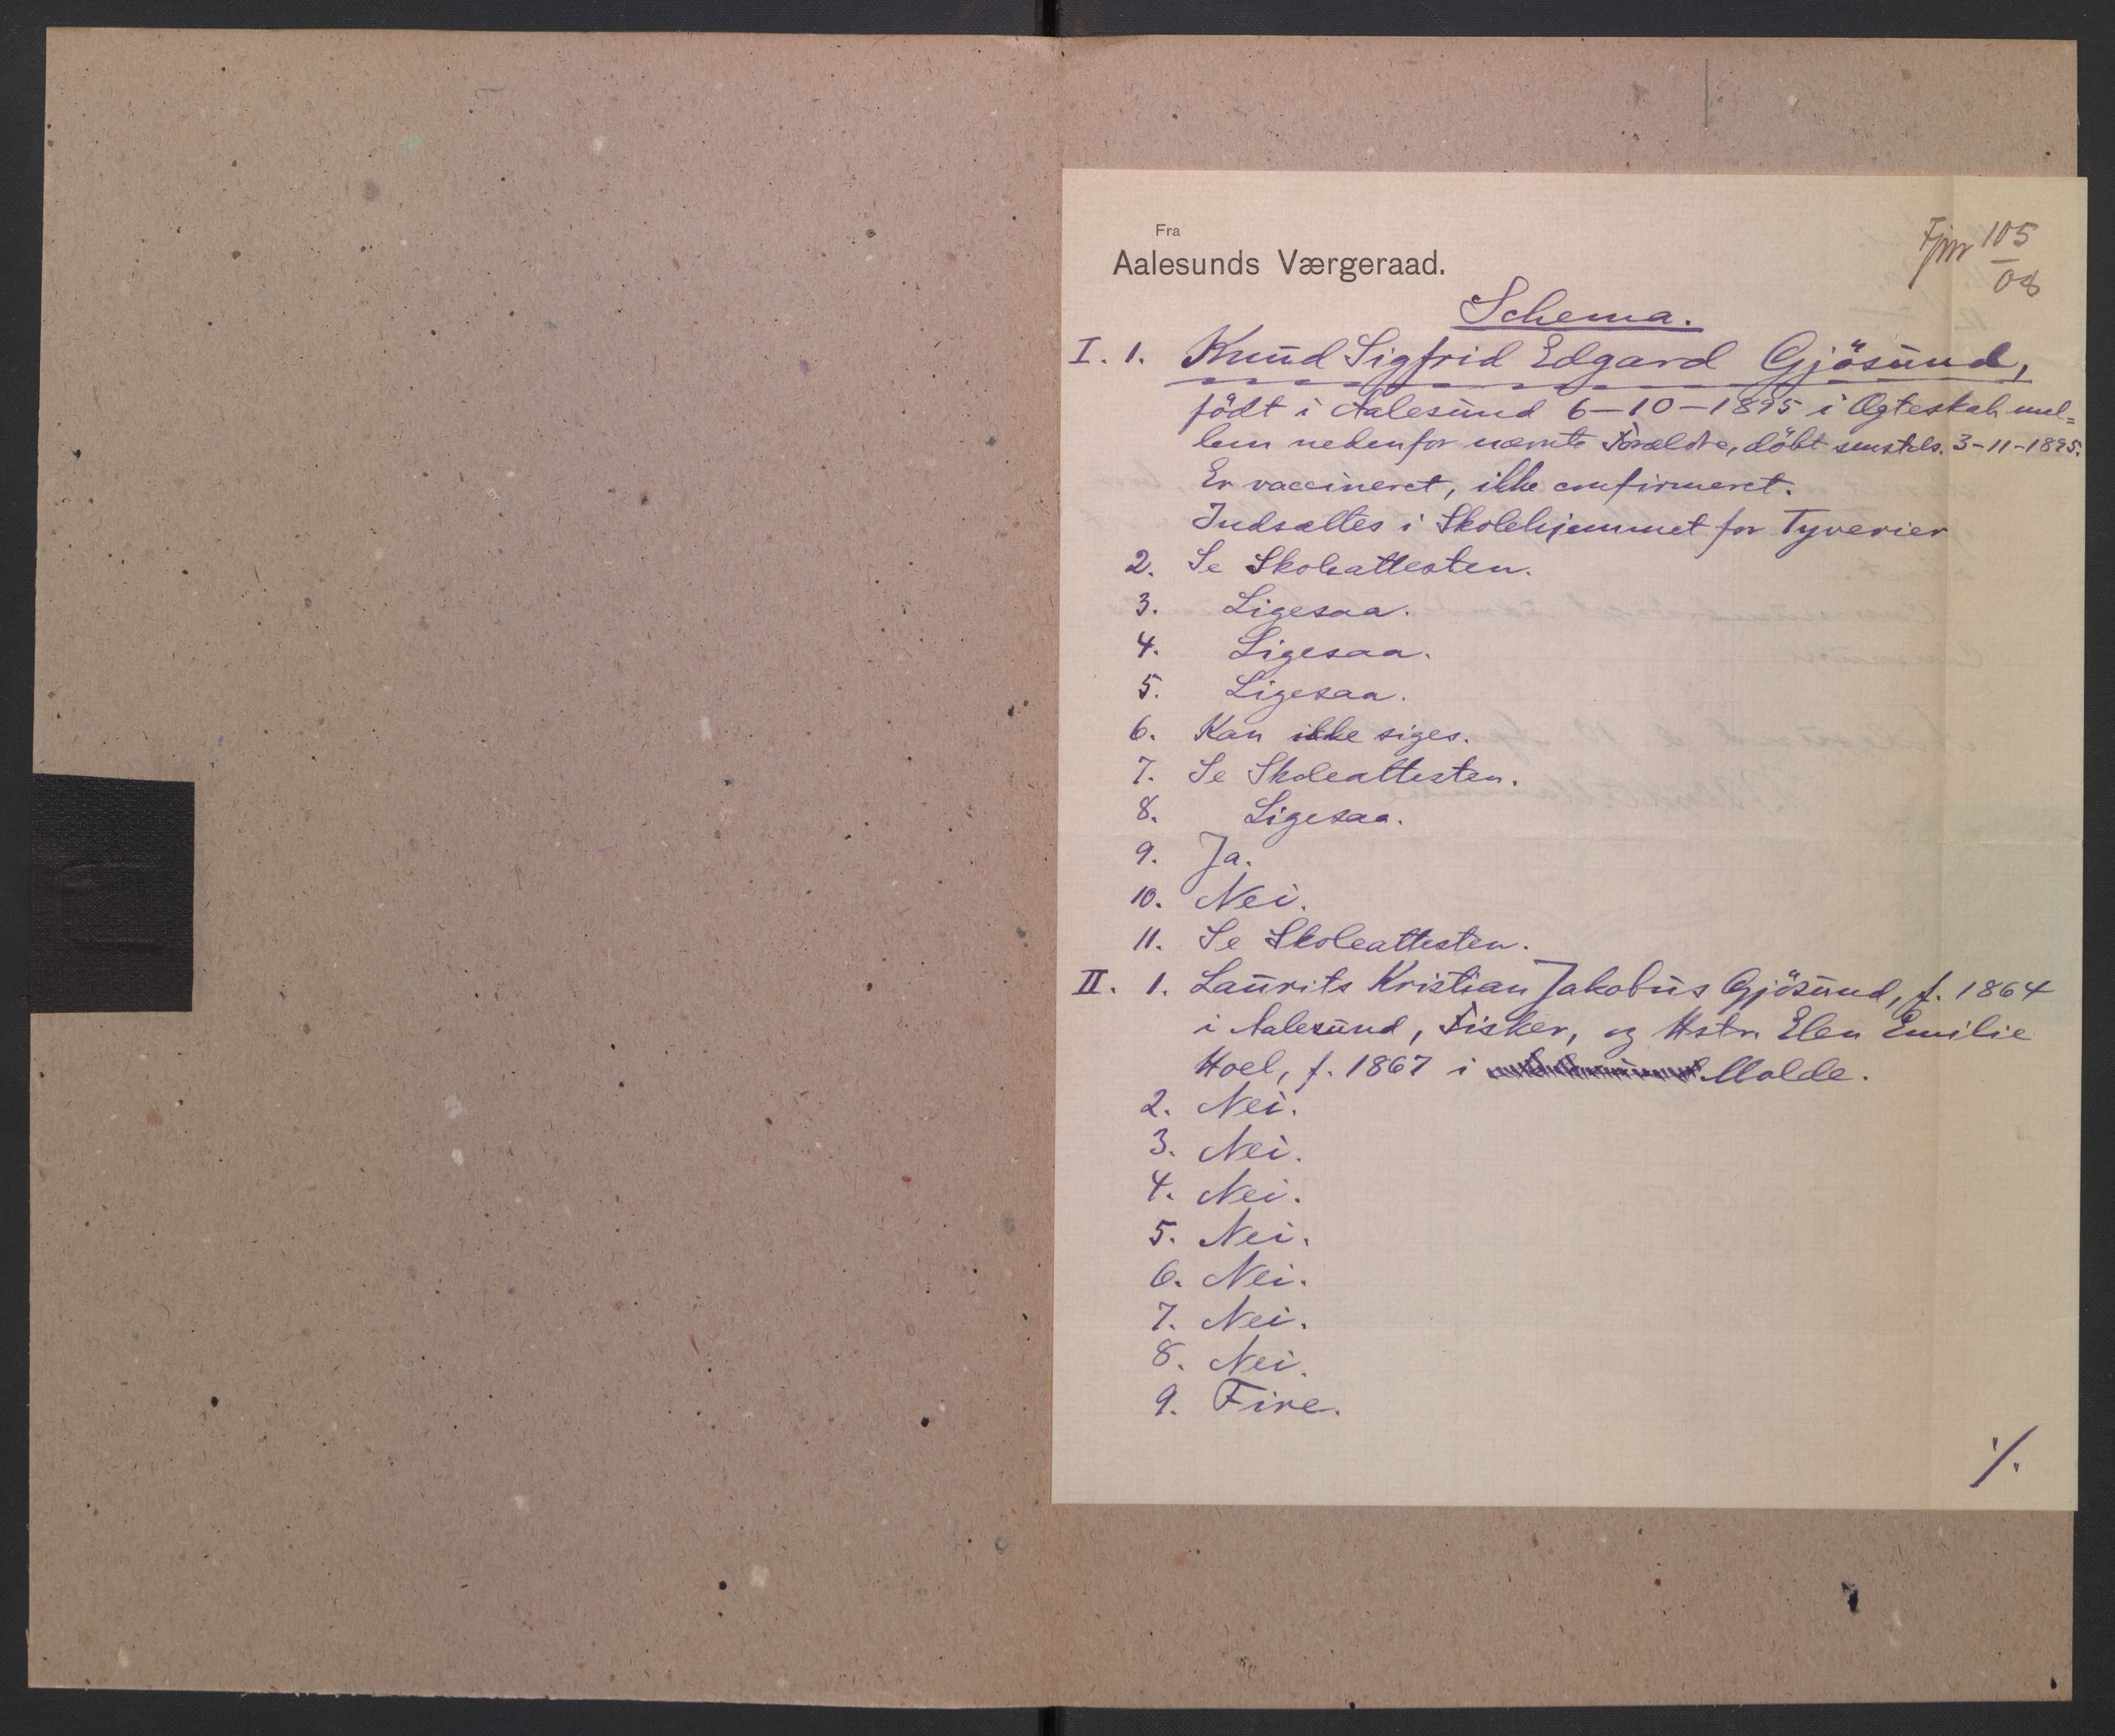 Fra
Aalesunds Værgeraad.
Fjnr 105
08
Schema.
I. 1. Knud Sigfrid Edgard Gjösund,
födt i Aalesund 6-10-1895 i Ægteskab mel=
lem nedenfor nævnte Forældre, döbt smstds. 3-11-1895.
Er vaccineret, ikke confirmeret.
Indsættes i Skolehjemmet for Tyverier
2. Se Skoleattesten.
3. Ligesaa.
4. Ligesaa.
5. Ligesaa.
6. Kan ikke siges.
7. Se Skoleattesten.
8. Ligesaa.
9. Ja.
10. Nei.
11. Se Skoleattesten.
II. 1. Laurits Kristian Jakobus Gjösund, f. 1864
i Aalesund, Fisker, og Hstr. Elen Emilie
Hoel, f. 1867 i Molde.
2. Nei.
3. Nei.
4. Nei.
5. Nei.
6. Nei.
7. Nei.
8. Nei.
9. Fire.
./.